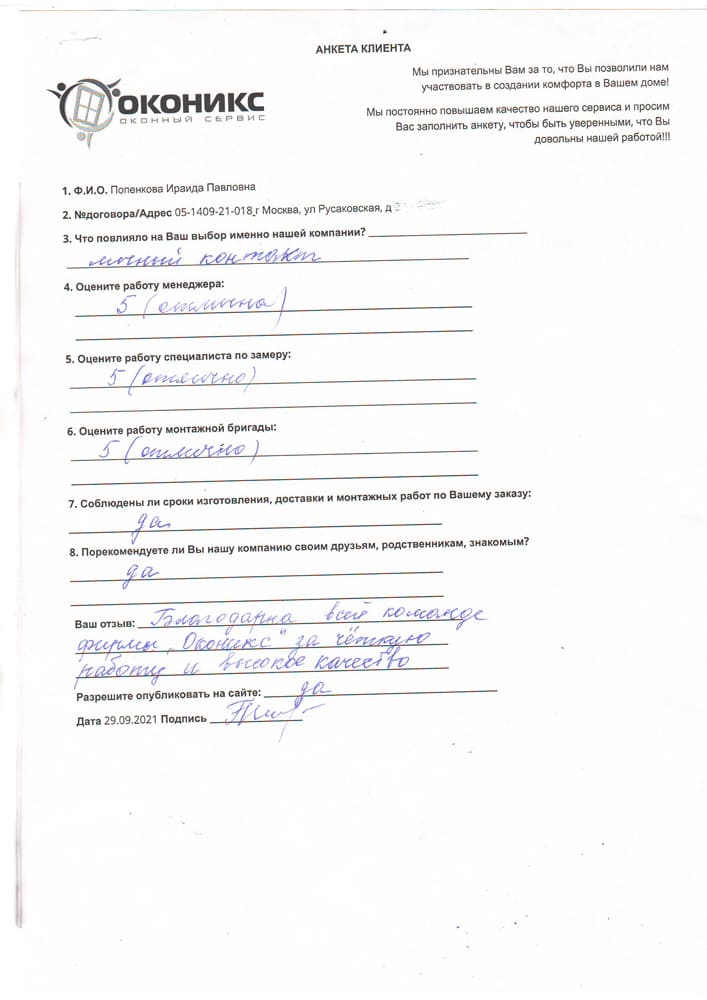 АНКЕТА КЛИЕНТА
Мы признательны Вам за то, что Вы позволили нам
участвовать в создании комфорта в Вашем доме!
ОКОНИКС
ОКОННЫЙ СЕРВИС
Мы постоянно повышаем качество нашего сервиса и просим
Вас заполнить анкету, чтобы быть уверенными, что Вы
довольны нашей работой!!!
1. Ф.И.О. Попенкова Ираида Павловна
2. №договора/Адрес 05-1409-21-018 г Москва, ул Русаковская, д
3. Что повлияло на Ваш выбор именно нашей компании?
личный контакт
4. Оцените работу менеджера:
5 (отлично)
5. Оцените работу специалиста по замеру:
5 (отлично)
6. Оцените работу монтажной бригады:
5 (отлично)
7. Соблюдены ли сроки изготовления, доставки и монтажных работ по Вашему заказу:
да
8. Порекомендуете ли Вы нашу компанию своим друзьям, родственникам, знакомым?
да
Ваш отзыв: Благодарна всей команде
фирмы „Оконикс" за чёткую
работу и высокое качество
Разрешите опубликовать на сайте: да
Дата 29.09.2021 Подпись